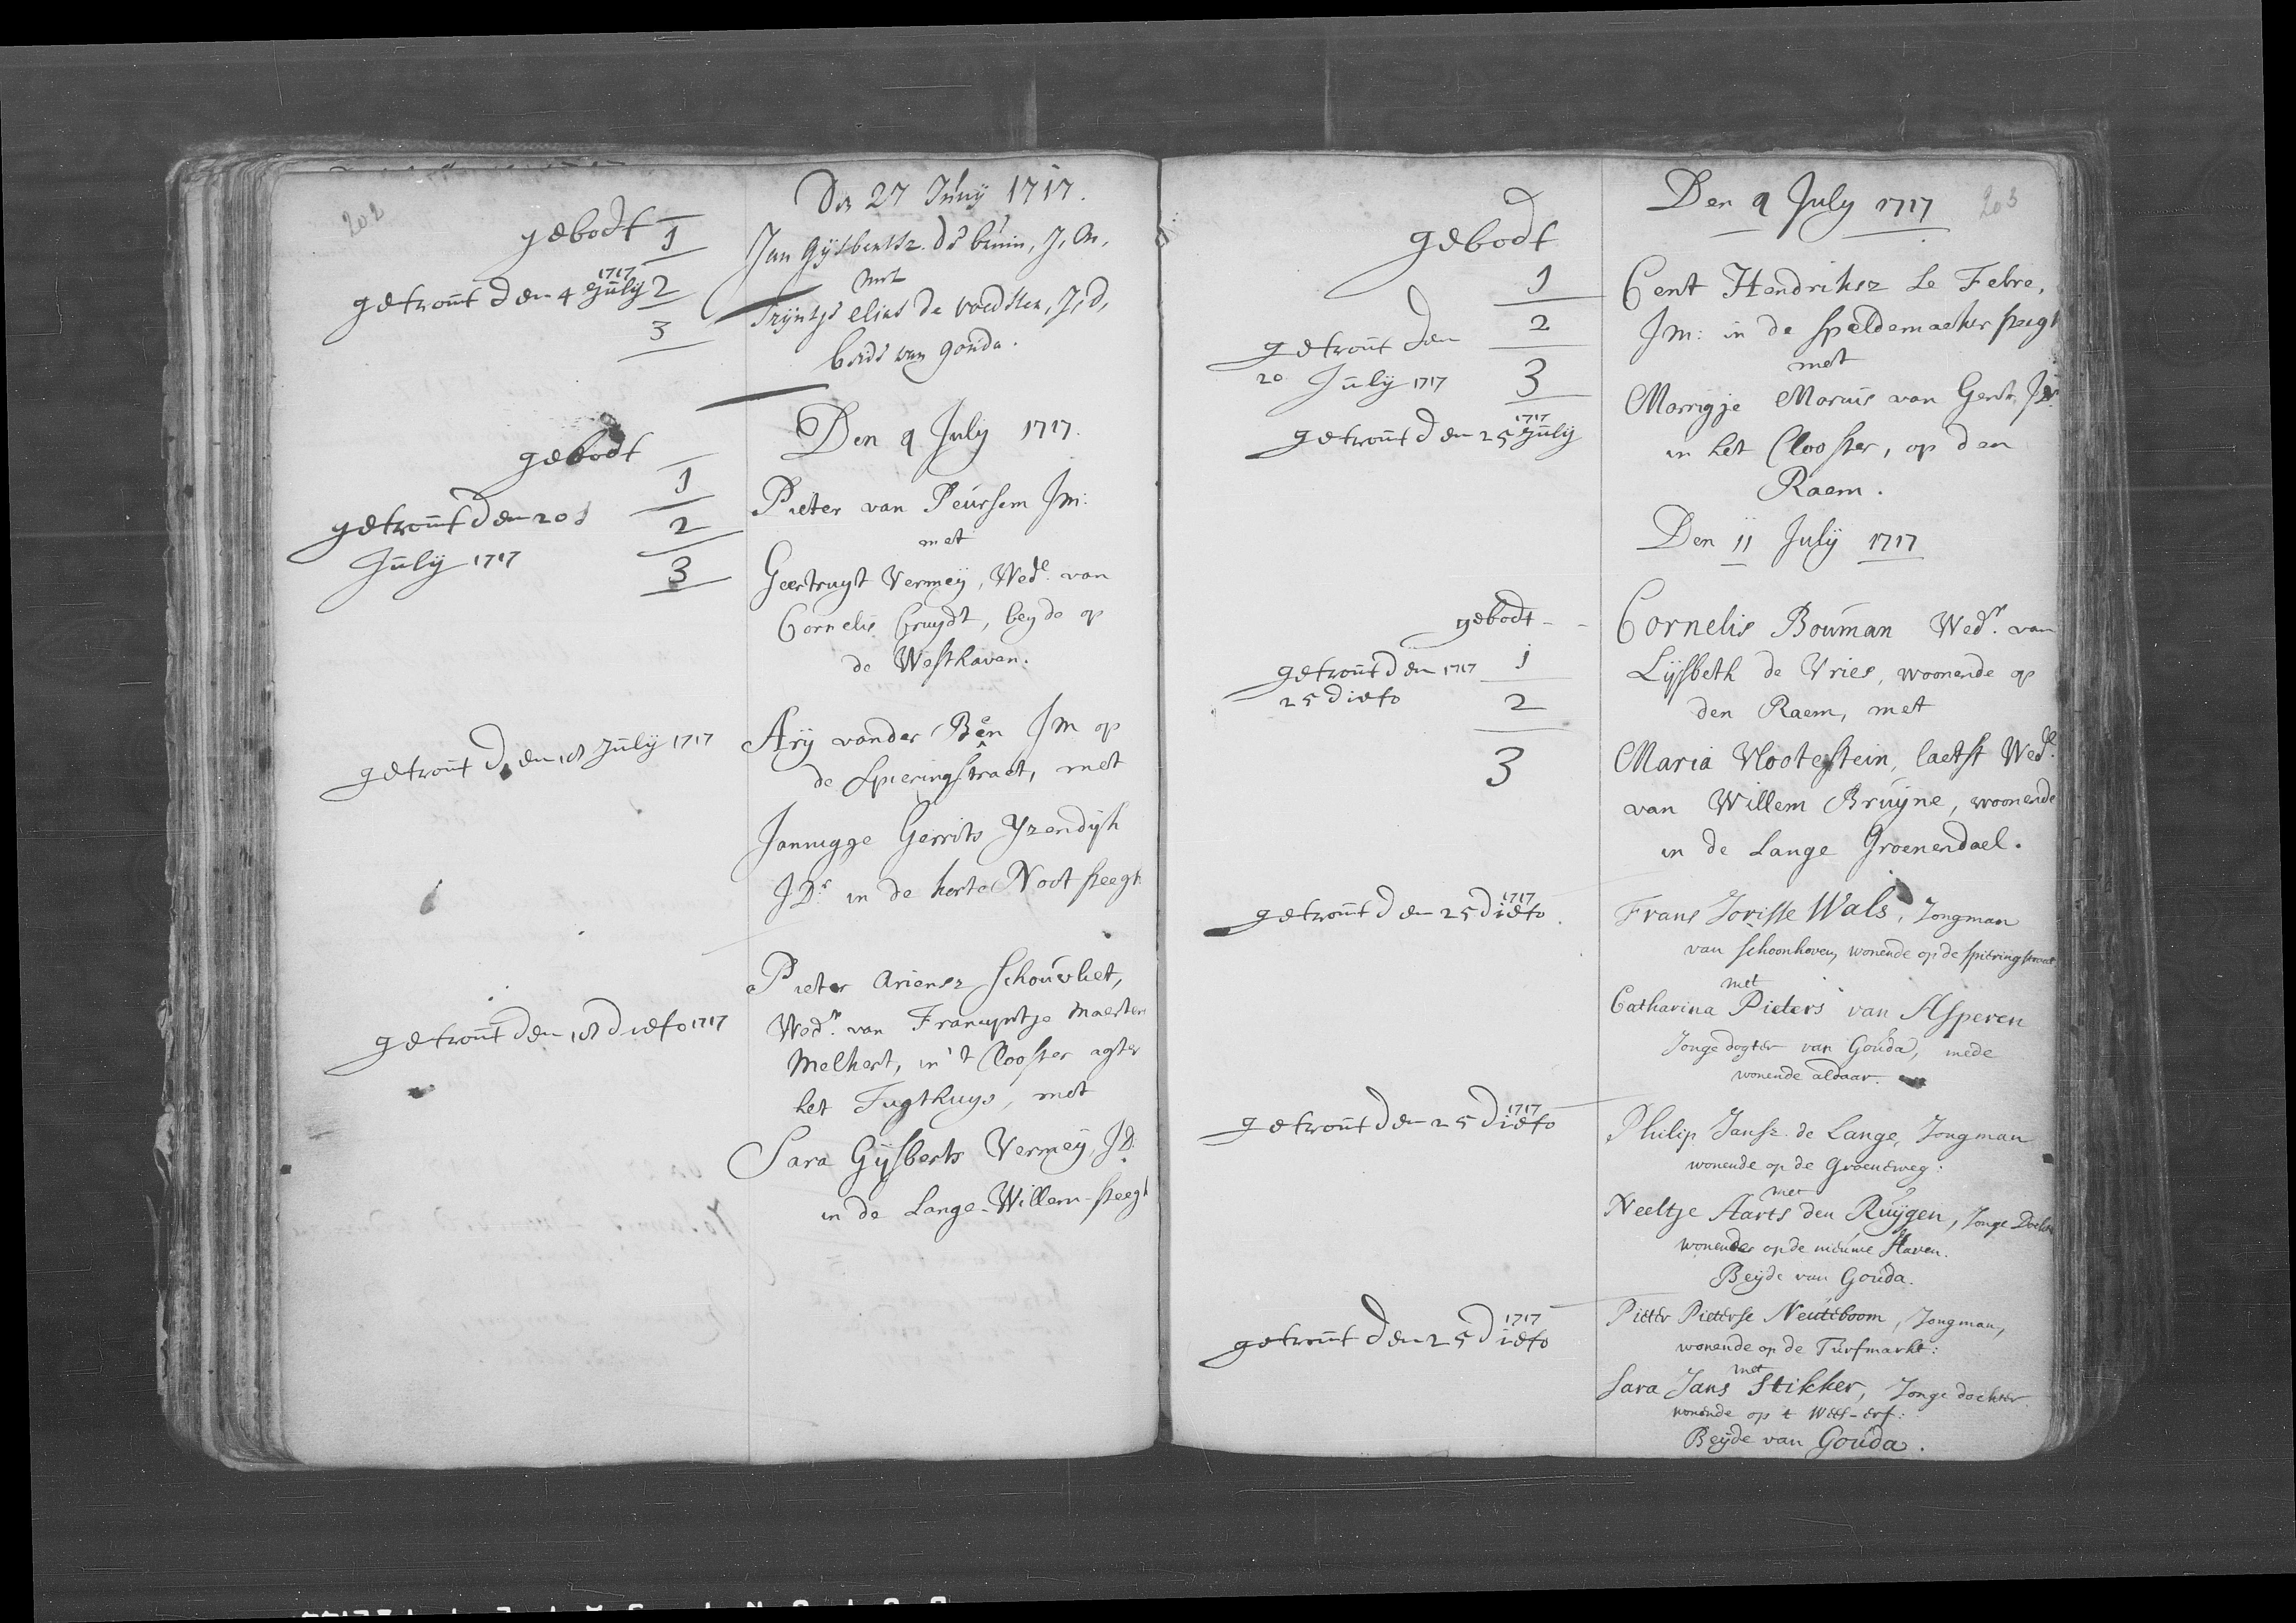 202
Den 27 Junij 1717.
gebodt 1
Jan Gijsbertsz. de bruin, J, M,
met
getrout den 4 Julij 1717 2
Trijntje Elias de voedster, J, d,
3
beide van gouda.
Den 9 July 1717.
gebodt
1
Pieter van Peursem JM:
getrout den 20
2
met
July 1717
3
Geertruyt Vermeÿ, Wed.e van
Cornelis Cruydt, beyde op
de Westhaven.
getrout den 18 Julij 1717
Arÿ vander Ben JM op
de Spieringstraet, met
Jannigge Gerrits Yzendijk
JD.r in de korte Noot steegh
Pieter Ariensz Schouvliet,
getrout den 18 dieto 1717
Wed.r van Francyntje Maerten
Melkert, in 't Clooster agter
het Tugthuys, met
Sara Gijsberts Vermeÿ, JD:
in de Lange-Willem-steegh
203
Den 9 July 1717
gebodt
1
Cent Hendriksz Le Febre,
2
JM: in de Speldemaeker steegh
getrout den
met
20 Julij 1717
3
Marrigje Maruis van Gent, JD.
getrout den 25 Julij 1717
in het Clooster, op den
Raem.
Den 11 Julÿ 1717
gebodt - -
Cornelis Bouman Wed.r van
getrout den 1717
1
Lijsbeth de Vries, woonende op
25 dieto
2
den Raem, met
3
Maria Vlootestein, laetst Wed.e
van Willem Bruÿne, woonende
in de Lange Groenendael.
getrout den 25 dieto 1717.
Frans Jorisse Wals, Jongman
van Schoonhoven, wonende op de Spieringstraat
met
Catharina Pieters van Asperen
Jonge dogter van Gouda, mede
wonende aldaar.
getrout den 25 dieto 1717
Philip Jansz. de Lange, Jongman
wonende op de Groeneweg:
met
Neeltje Aarts den Ruÿgen, Jonge Dochter
wonende op de nieuwe Haven.
Beÿde van Gouda.
getrout den 25 dieto 1717
Pieter Pieterse Neuteboom, Jongman,
wonende op de Turfmarkt:
met
Sara Jans Stikker, Jonge dochter
wonende op 't Wees-erf:
Beÿde van Gouda.